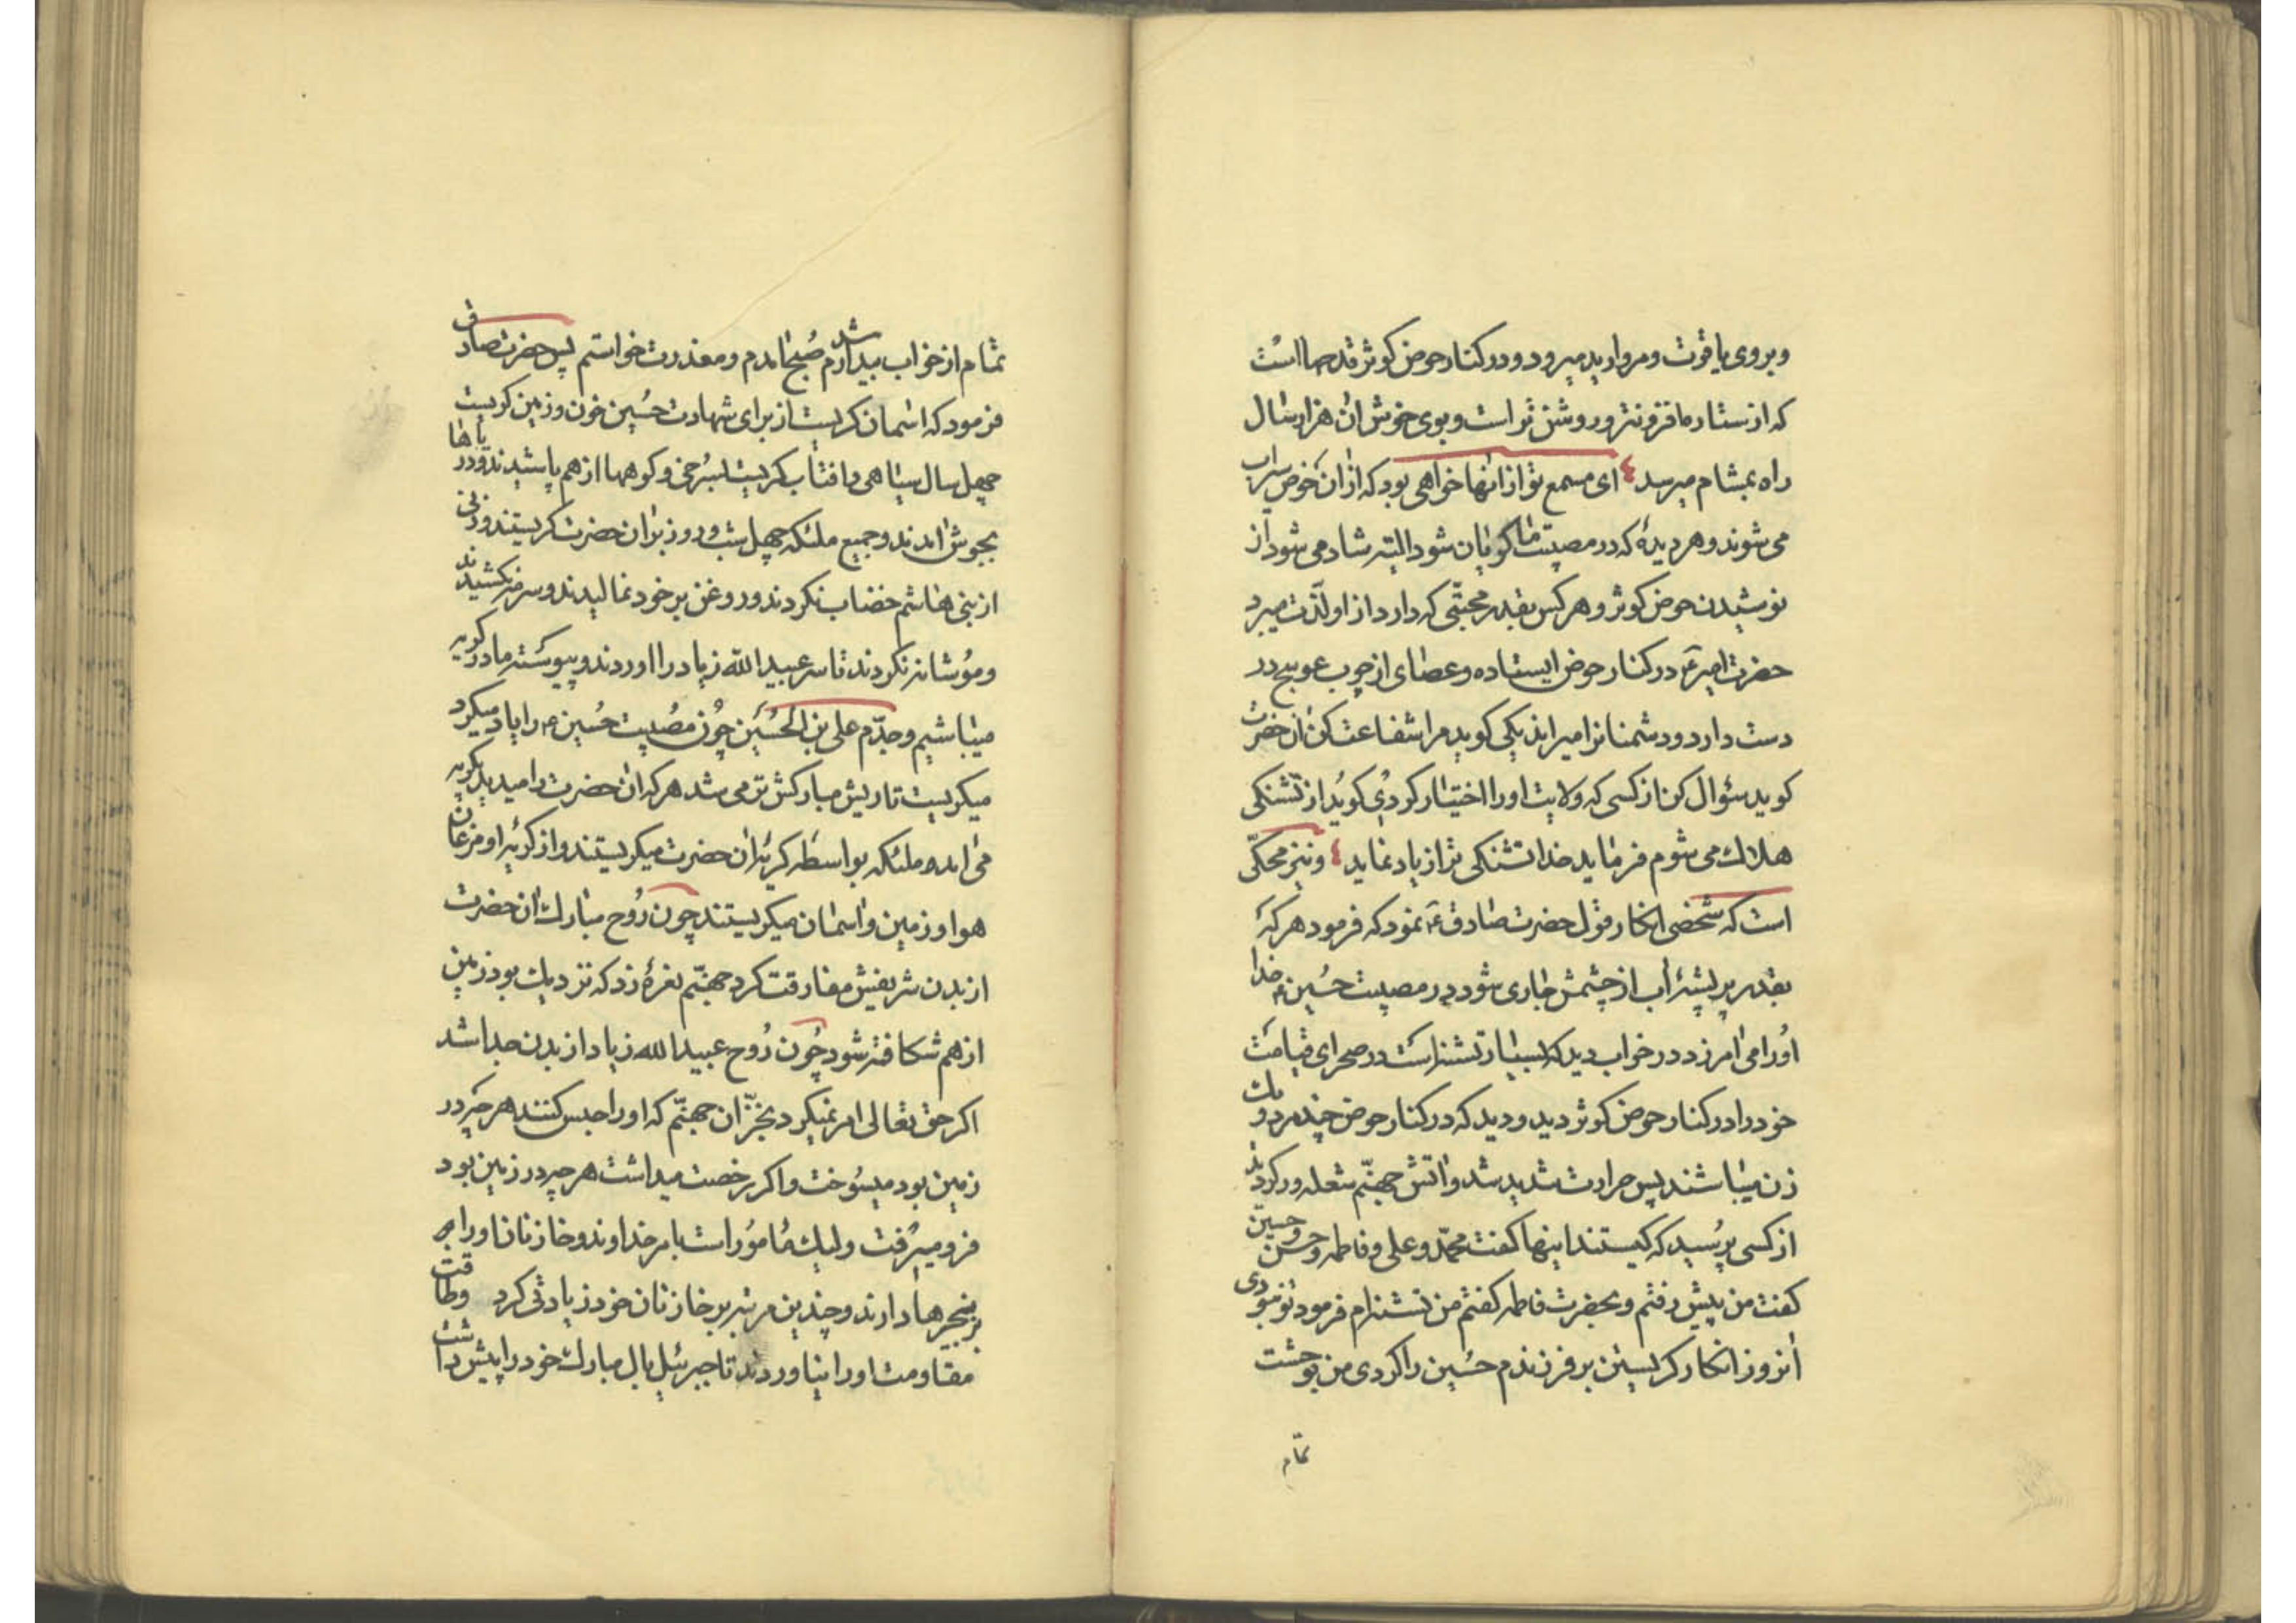 وبروی یاقوت ومروارید میرود و در کنار حوض کوثر قدحها است
که از ستاره افزونتر و روشن تر است وبوی خوش ان هزار سال
راه بمشام میرسد ای مسمع تو از انها خواهی بود که از ان حوض سیراب
می شوند وهر دیدهٔ که در مصیبت ما کریان شود البته شاد می شود از
نوشیدن حوض کوثر وهر کس بقدر محبتی که دارد از او لذت میبرد
حضرت امیر ع در کنار حوض ایستاده وعصای از چوب عوسج در
دست دارد ودشمنانرا میراند یکی کوید مرا شفاعت کن ان حضرت
کوید سؤال کن از کسی که ولایت او را اختیار کردی کوید از تشنکی
هلاک می شوم فرماید خدا تشنکی ترا زیاد نماید ونیز محکی
است که شخصی انکار قول حضرت صادق ع نمود که فرمود هر که
بقدر پر پشه اب از چشمش جاری شود در مصیبت حسین ع خدا
اورا می امرزد در خواب دید که بسیار تشنه است در صحرای قیامت
خود را در کنار حوض کوثر دید ودید که در کنار حوض چند مرد ویک
زن میباشند پس حرارت شدید شد واتش جهنم شعله ور کردید
از کسی پرسید که کیستند اینها کفت محمد وعلی وفاطمه وحسن وحسین
کفت من پیش رفتم وبحضرت فاطمه کفتم من تشنه ام فرمود تو بودی
انروز انکار کریستن بر فرزندم حسین را کردی من بوحشت
تمام
تمام از خواب بیدار شدم صبح امدم ومعذرت خواستم پس حضرت صادق
فرمود که اسمان کریست از برای شهادت حسین خون وزمین کریست
چهل سال سیاهی وافتاب کریست بسرخی وکوهها از هم پاشیدند ودریاها
بجوش امدند وجمیع ملئکه چهل شب وروز بر ان حضرت کریستند وزنی
از بنی هاشم خضاب نکردند وروغن بر خود نمالیدند وسرمه نکشیدند
ومو شانه نکردند تا سر عبید الله زیاد را اوردند وپیوسته ما در کریه
میباشیم وجدم علی بن الحسین چون مصیبت حسین ع را یاد میکرد
میکریست تا ریش مبارکش تر می شد هر که ان حضرت را میدید بکریه
می امد وملئکه بواسطه کریه ان حضرت میکریستند واز کریه او مرغان
هوا وزمین واسمان میکریستند چون روح مبارک ان حضرت
از بدن شریفش مفارقت کرد جهنم نعرهٔ زد که نزدیک بود زمین
از هم شکافته شود چون روح عبید الله زیاد از بدن جدا شد
اکر حق تعالی امر نمیکرد بخزان جهنم که او را حبس کنند هر چه در
زمین بود میسوخت واکر رخصت میداشت هر چه در زمین بود
فرو میرفت ولیک مامور است بامر خداوند وخازنان او را به
زنجیرها دارند وچندین مرتبه بر خازنان خود زیادتی کرد وطاقت
مقاومت او را نیاوردند تا جبرئیل بال مبارک خود را پیش داشت